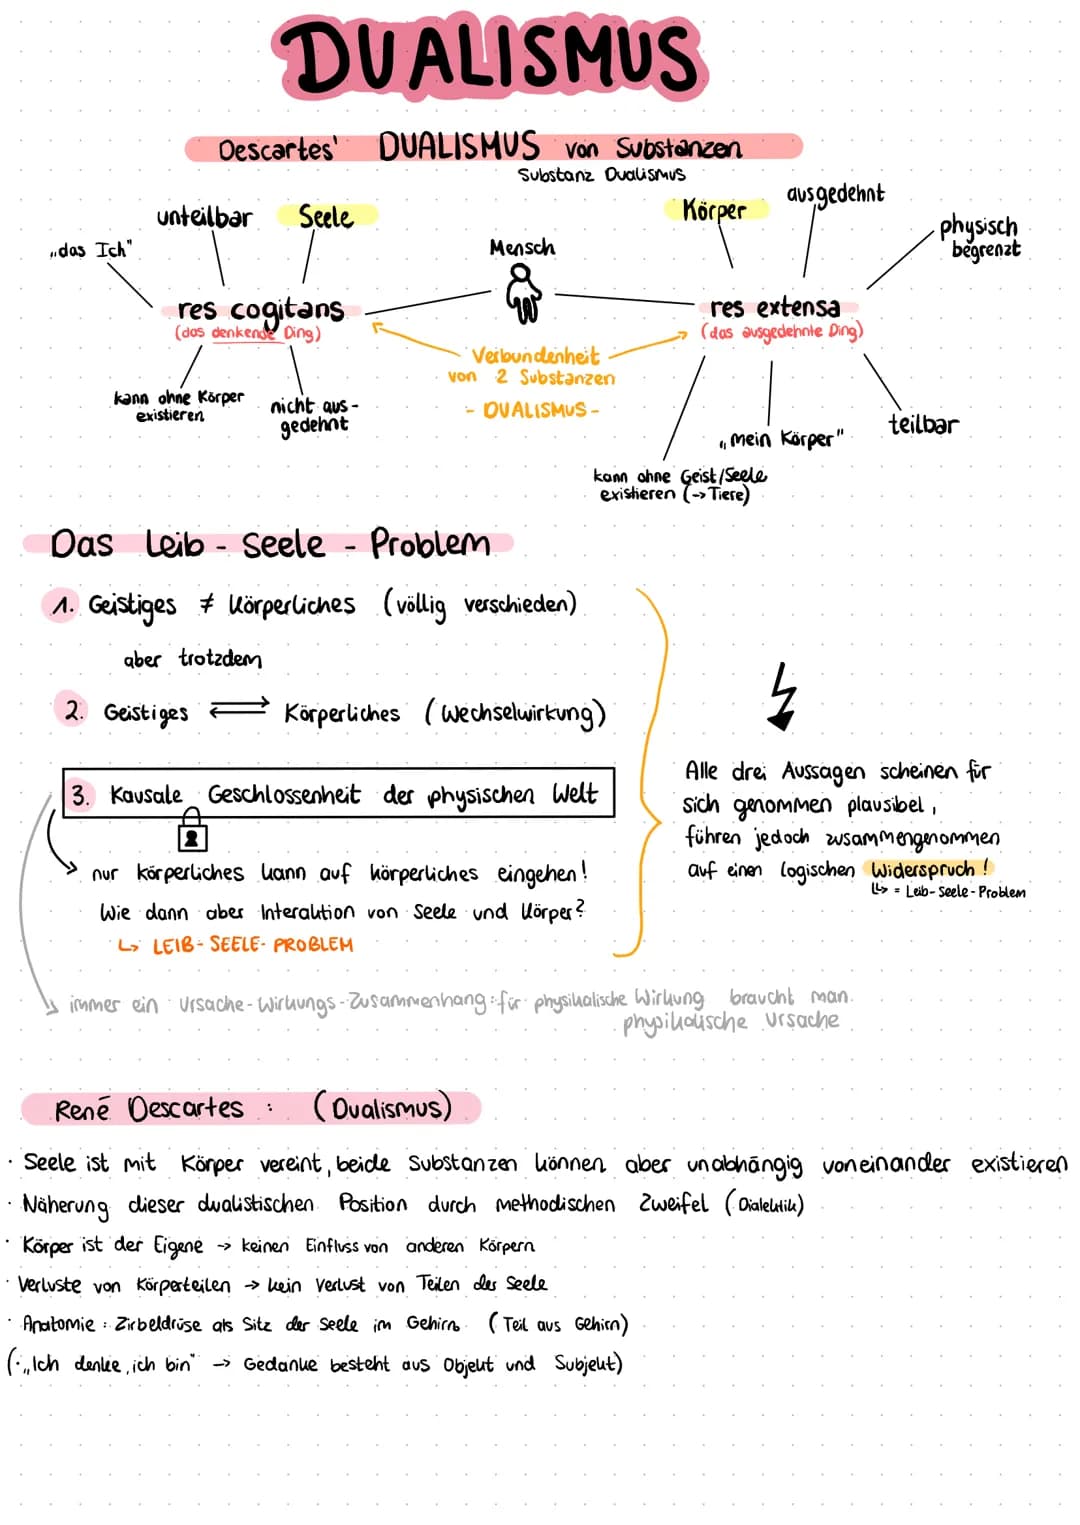 DUALISMUS
Descartes' DUALISMUS von Substanzen
Substanz Dualismus
unteilbar
Seele
„das Ich"
res cogitans
(das denkende Ding)
kann ohne Körper
existieren
nicht aus-
gedehnt
Mensch
Verbundenheit
von 2 Substanzen
- DUALISMUS -
Körper
ausgedehnt
physisch
begrenzt
res extensa
(das ausgedehnte Ding)
„mein Körper"
teilbar
kann ohne Geist/Seele
existieren (→Tiere)
Das Leib - Seele - Problem
1. Geistiges ≠ Körperliches (völlig verschieden)
aber trotzdem
2. Geistiges ⇄ Körperliches (Wechselwirkung)
3. Kausale Geschlossenheit der physischen Welt
nur körperliches kann auf körperliches eingehen!
Wie dann aber Interaktion von Seele und Körper?
↳ LEIB-SEELE-PROBLEM
immer ein Ursache-Wirkungs-Zusammenhang: für physikalische Wirkung braucht man
physikalische Ursache
Alle drei Aussagen scheinen für
sich genommen plausibel,
führen jedoch zusammengenommen
auf einen logischen Widerspruch!
↳ = Leib-Seele-Problem
René Descartes : (Dualismus)
· Seele ist mit Körper vereint, beide Substanzen können aber unabhängig voneinander existieren
· Näherung dieser dualistischen Position durch methodischen Zweifel (Dialektik)
· Körper ist der Eigene → keinen Einfluss von anderen Körpern
· Verluste von Körperteilen → kein Verlust von Teilen der Seele
· Anatomie: Zirbeldrüse als Sitz der Seele im Gehirn (Teil aus Gehirn)
(· „Ich denke, ich bin" → Gedanke besteht aus Objekt und Subjekt)